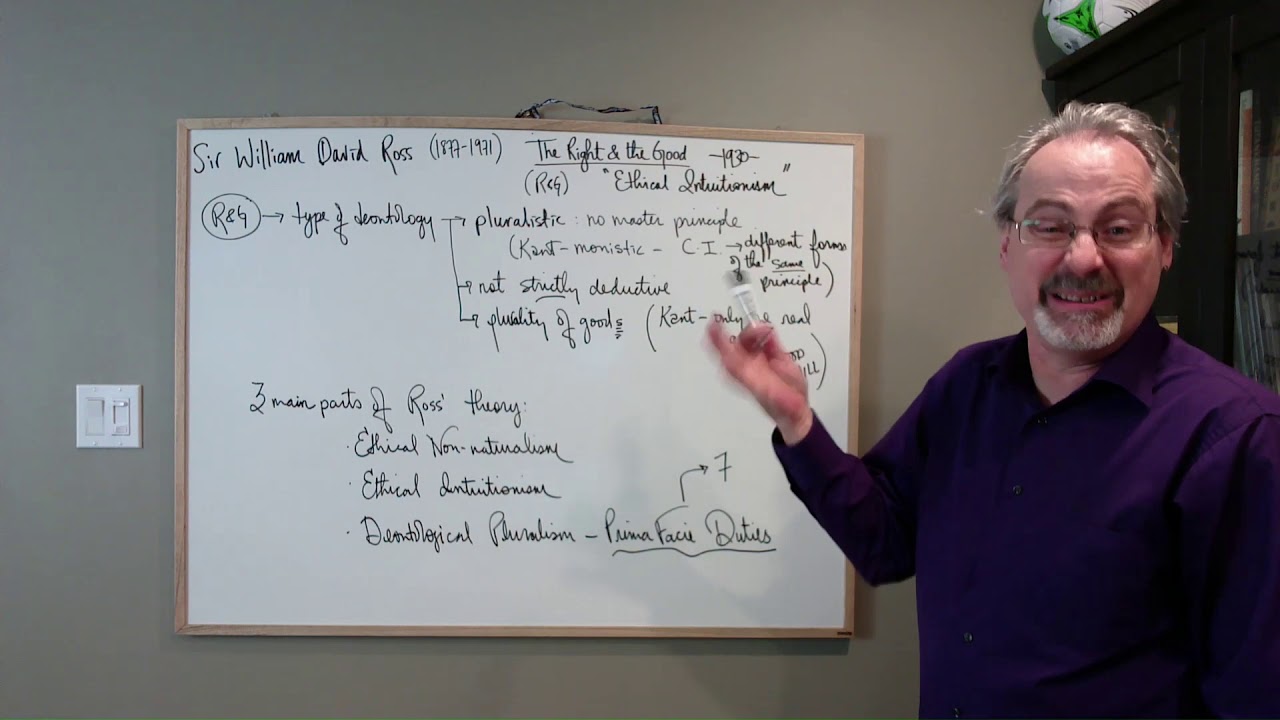 Sir William David Ross (1877-1971) The Right & the Good -1930-
(R&G) "Ethical Intuitionism"
R&G → type of deontology → pluralistic : no master principle
(Kant - monistic - C.I. → different forms
of the same
principle)
→ not strictly deductive
→ plurality of goods (Kant - only real
3 main parts of Ross' theory:
· Ethical Non-naturalism
· Ethical Intuitionism
→ 7
· Deontological Pluralism - Prima Facie Duties